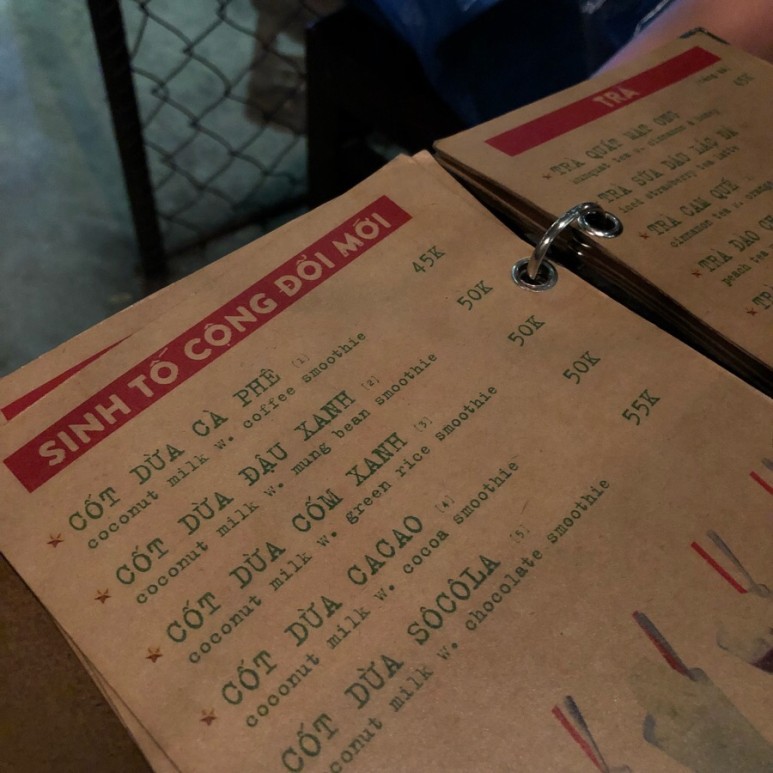 SINH TỐ CỘNG ĐỔI MỚI
CỐT DỪA CÀ PHÊ [1] 45K
coconut milk w. coffee smoothie
CỐT DỪA ĐẬU XANH [2] 50K
coconut milk w. mung bean smoothie
CỐT DỪA CỐM XANH [3] 50K
coconut milk w. green rice smoothie
CỐT DỪA CACAO [4] 50K
coconut milk w. cocoa smoothie
CỐT DỪA SÔCÔLA [5] 55K
conut milk w. chocolate smoothie
TRÀ
TRÀ QUẤT MẬT ONG 45K
kumquat tea w. cinnamon & honey
TRÀ SỮA DÂU LẮC ĐÁ
iced strawberry tea latte
TRÀ CAM QUẾ
cinnamon tea w. orange
TRÀ ĐÀO
peach tea